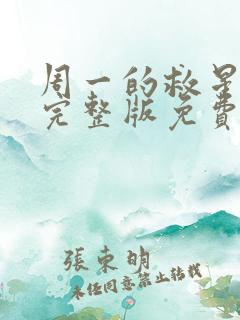 周一的救星
完整版免費
張東明
未经同意禁止转载